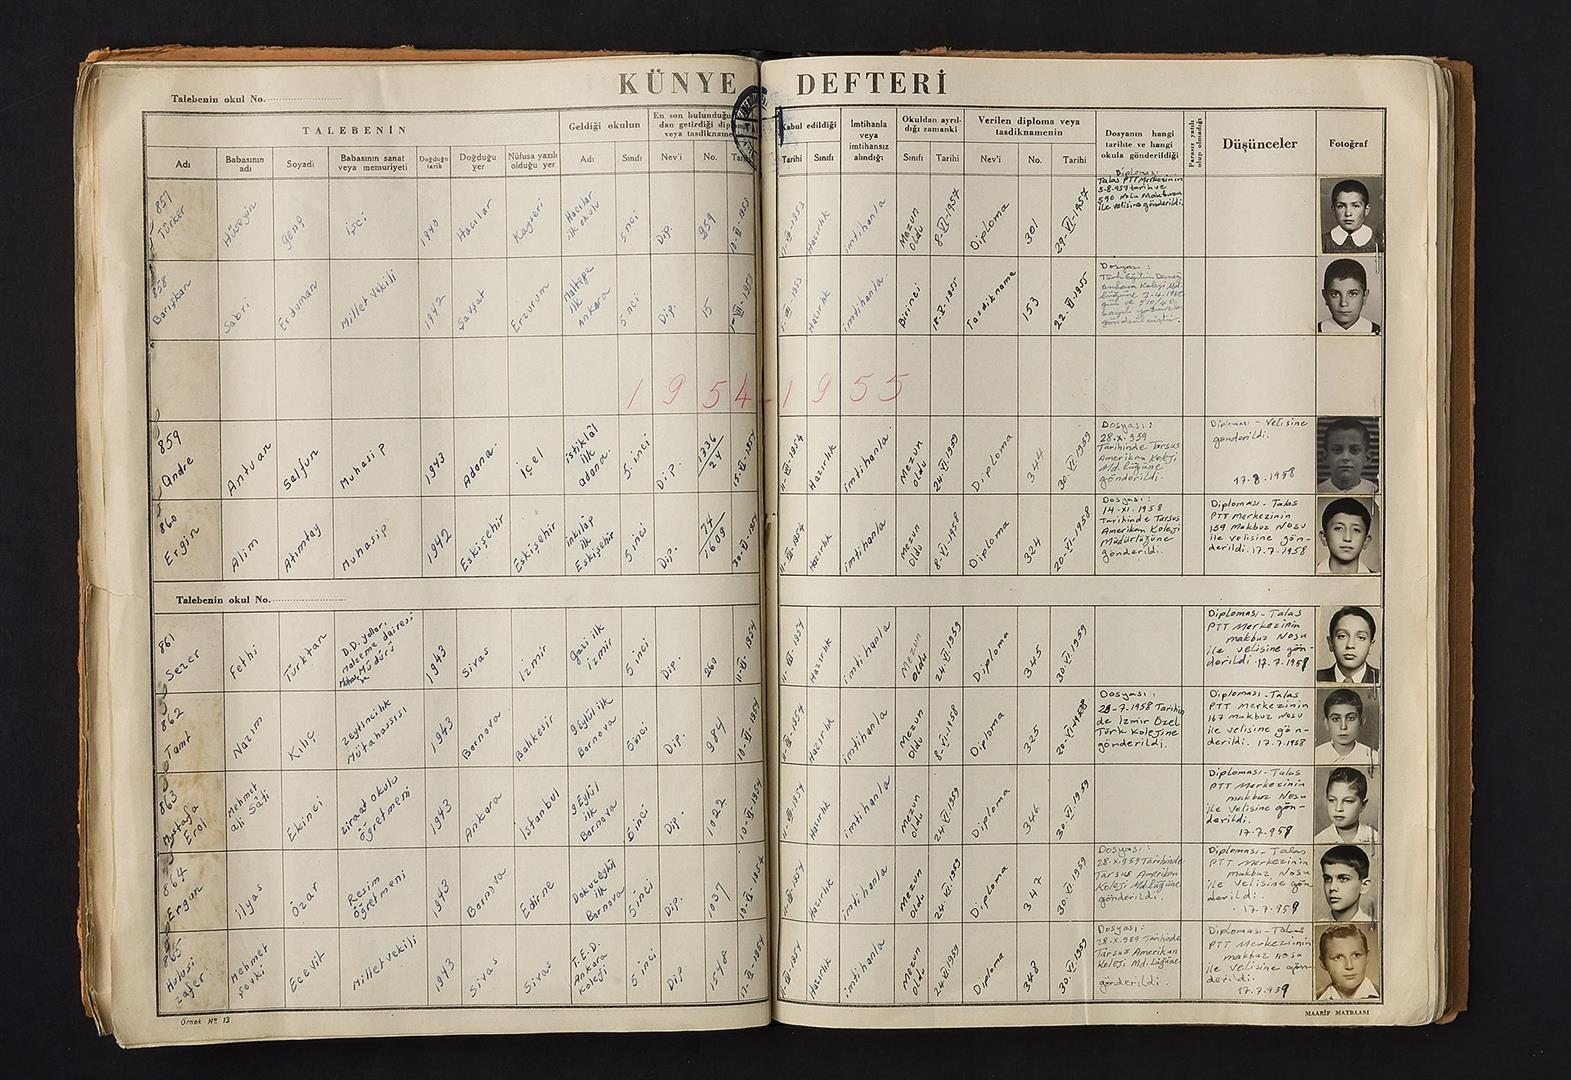 KÜNYE DEFTERİ
Talebenin okul No.
TALEBENİN
Geldiği okulun
En son bulunduğu
dan getirdiği
veya tasdikname
Kabul edildiği
İmtihanla
veya
imtihansız
alındığı
Okuldan ayrıl-
dığı zamanki
Verilen diploma veya
tasdiknamenin
Dosyanın hangi
tarihte ve hangi
okula gönderildiği
Parasız yatılı
olup olmadığı
Düşünceler
Fotoğraf
Adı
Babasının
adı
Soyadı
Babasının sanat
veya memuriyeti
Doğduğu
tarih
Doğduğu
yer
Nüfusa yazılı
olduğu yer
Adı
Sınıfı
Nev'i
No.
Tarihi
Sınıfı
Sınıfı
Tarihi
Nev'i
No.
Tarihi
857
Türker
Hüseyin
genç
işçi
1940
Hacılar
Kayseri
Hacılar
ilk okulu
5 nci
Dip.
959
Hazırlık
imtihanla
Mezun
oldu
8-VI-1957
Diploma
301
29-VI-1957
Diploması
Talas PTT Merkezinin
5-8-957 tarih ve
590 Nolu Makbuzu
ile velisine gönderildi.
858
Barışkan
Sabri
Erduman
Milletvekili
1942
Şavşat
Erzurum
Maltepe
ilk
Ankara
5 nci
Dip.
15
Hazırlık
imtihanla.
Birinci
Tasdikname
153
22-VI-1955
Dosyası:
Türk Eğitim Derneği
Ankara Koleji Md.
1954-1955
859
Andre
Antuan
Selfun
Muhasip
1943
Adana
içel
istiklâl
ilk
adana
5.inci
Dip.
1336
24
15-VI-1954
Hazırlık
imtihanla.
Mezun
oldu
24-VI-1959
Diploma
344
30-VI-1959
Dosyası:
28.X.959
Tarihinde Tarsus
Amerikan Koleji
Md.lüğüne
gönderildi.
Diploması - Velisine
gönderildi.
17.8.1958
860
Ergin
Alim
Atımtay
Muhasip
1942
Eskişehir
Eskişehir
inkılap
ilk
Eskişehir
5 inci
Dip.
74
1609
Hazırlık
imtihanla
Mezun
oldu
8-VI-1958
Diploma
324
20-VI-1958
Dosyası:
14-XI.1958
Tarihinde Tarsus
Amerikan Koleji
Müdürlüğüne
gönderildi.
Diploması - Talas
PTT Merkezinin
159 Makbuz Nosu
ile velisine gön-
derildi. 17.7.1958
Talebenin okul No.
861
Sezer
Fethi
Türktan
D.D. yolları
malzeme dairesi
1943
Sivas
izmir
gazi ilk
izmir
5 inci
Dip.
260
11-VI-1954
Hazırlık
imtihanla
Mezun
oldu
24-VI-1959
Diploma
345
30.VI.1959
Diploması - Talas
PTT Merkezinin
makbuz Nosu
ile velisine gön-
derildi. 17.7.1959
862
Tanıt
Nazım
Kılıç
zeytincilik
Mütahassısı
1943
Bornova
Balıkesir
9 Eylül ilk
Bornova
5inci
Dip.
984
10-VI-1954
Hazırlık
imtihanla
Mezun
oldu
8-VI-1958
Diploma
325
20-VI-1958
Dosyası.
29-7.1958 Tarihin
de İzmir Özel
Türk Kolejine
gönderildi.
Diploması - Talas
PTT Merkezinin
167 makbuz Nosu
ile velisine gön-
derildi. 17.7.1958
863
Mustafa
Erol
Mehmet
Ali Sâti
Ekinci
ziraat okulu
Öğretmeni
1943
Ankara
İstanbul
9 Eylül
ilk
Bornova
5inci
Dip.
1022
10-VI-1954
Hazırlık
imtihanla
Mezun
oldu
24-VI-1959
Diploma
346
30.VI.1959
Diploması - Talas
PTT Merkezinin
makbuz Nosu
ile velisine gön-
derildi.
17.7.959
864
Ergun
ilyas
Özar
Resim
Öğretmeni
1943
Bornova
Edirne
Dokuzeylül
ilk
Bornova
5.inci
Dip.
1037
10-VI-1954
Hazırlık
imtihanla
Mezun
oldu
24-VI-1959
Diploma
347
30.VI.1959
Dosyası:
28.X.959 Tarihinde
Tarsus Amerikan
Koleji Md.lüğüne
gönderildi.
Diploması - Talas
PTT Merkezinin
makbuz Nosu
ile velisine gön
derildi.
17.7.959
865
Hulusi
zafer
Mehmet
Şevki
Ecevit
Milletvekili
1943
Sivas
Sivas
T.E.D.
Ankara
Koleji
5 inci
Dip
1548
11-VI-1954
Hazırlık
imtihanla
Mezun
oldu
24-VI-1959
Diploma
348
30.VI.1959
Dosyası:
28.X.959 Tarihinde
Tarsus Amerikan
Koleji Md.lüğüne
gönderildi.
Diploması - Talas
PTT Merkezinin
makbuz nosu
ile velisine gön
derildi.
17.7.959
Örnek No 13
MAARİF MATBAASI